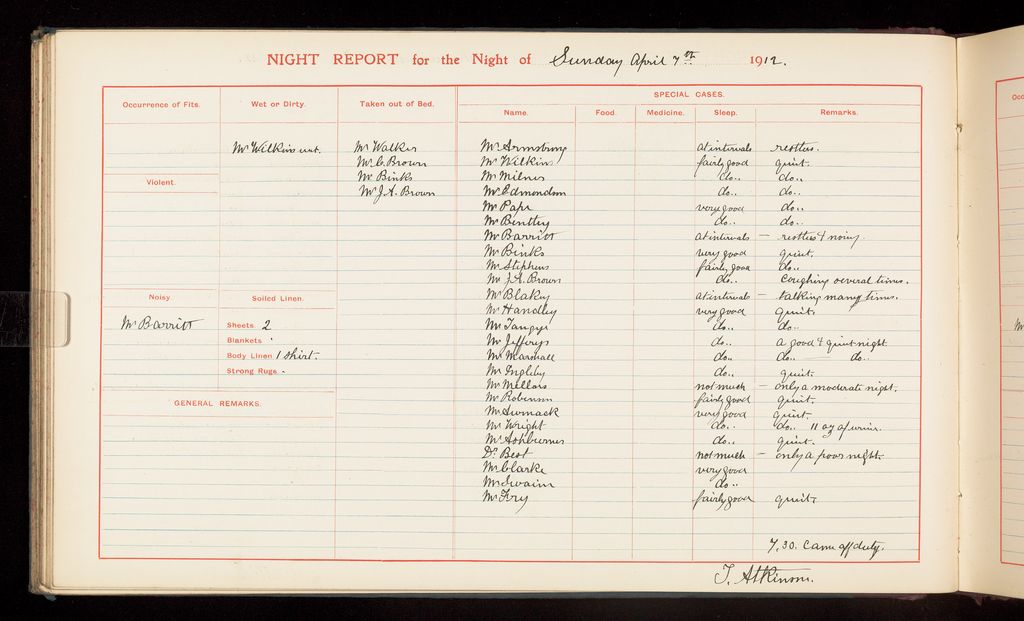 NIGHT REPORT for the Night of Sunday April 7th 1912.
Occurrence of Fits.
Wet or Dirty.
Mr Wilkins wet.
Taken out of Bed.
Mr Walker
Mr C. Brown
Mr Binks
Mr J.A. Brown
Violent.
Noisy
Mr Barritt
Soiled Linen.
Sheets 2
Blankets
Body Linen 1 shirt.
Strong Rugs.
GENERAL REMARKS.
SPECIAL CASES.
Name. Food. Medicine. Sleep. Remarks.
Mr Armsbury at intervals restless.
Mr Wilkins fairly good quiet.
Mr Milnes do.. do..
Mr Edmondson do.. do..
Mr Pape very good do..
Mr Bentley do.. do..
Mr Barritt at intervals — restless & noisy.
Mr Binks very good quiet.
Mr Stephens fairly good do..
Mr J.A. Brown do.. Coughing several times.
Mr Blakey at intervals — talking many times.
Mr Handley very good quiet.
Mr Tangye do.. do..
Mr Jefferys do.. a good & quiet night
Mr Marshall do.. do.. — do..
Mr Ingleby do.. quiet.
Mr Mellors not much — only a moderate night.
Mr Robinson fairly good quiet.
Mr very good quiet.
Mr Wright do.. do.. 11 oz of urine.
Mr do.. quiet.
Dr Best not much — only a poor night.
Mr Clarke very good
Mr Swain do..
Mr Fry fairly good quiet.
7.30. Came off duty.
T. Atkinson.